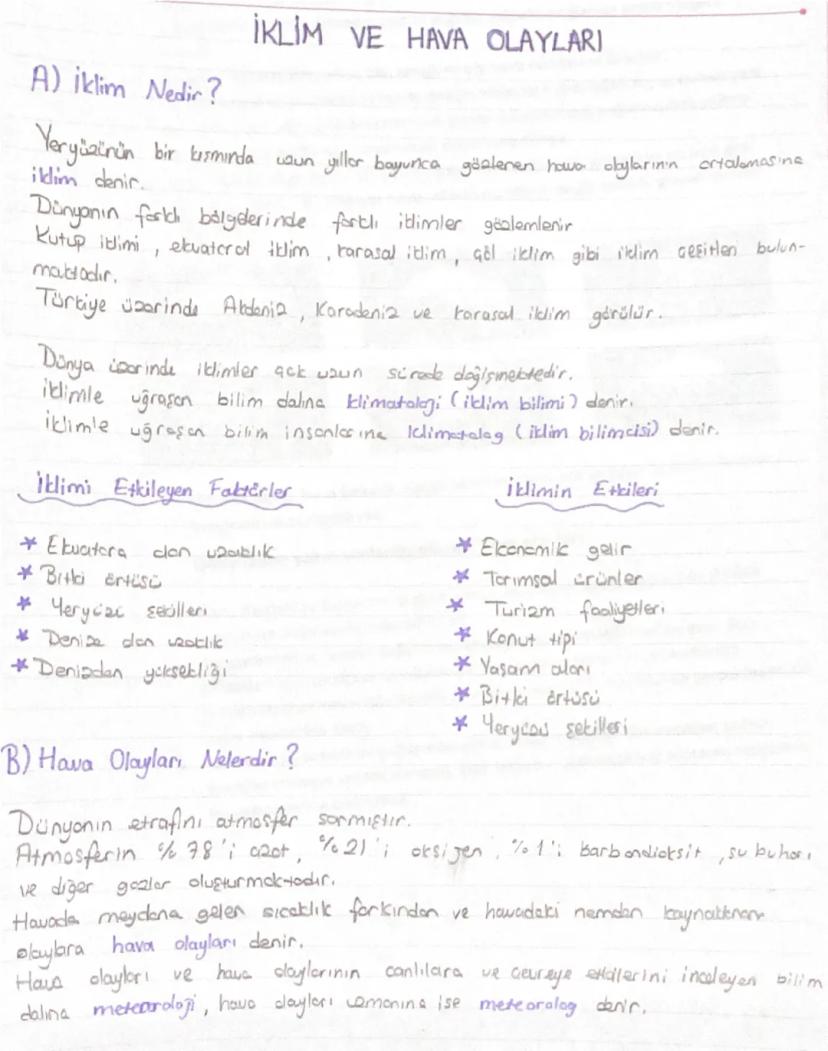 İKLİM VE HAVA OLAYLARI
A) İklim Nedir?
Yeryüzünün bir kısmında uzun yıllar boyunca gözlenen hava olaylarının ortalamasına
iklim denir.
Dünyanın farklı bölgelerinde farklı iklimler gözlemlenir
Kutup iklimi, ekvatoral iklim, karasal iklim, çöl iklim gibi iklim çeşitleri bulun-
maktadır.
Türkiye üzerinde Akdeniz, Karadeniz ve karasal iklim görülür.
Dünya üzerinde iklimler çok uzun sürede değişmektedir.
İklimle uğraşan bilim dalına klimatoloji (iklim bilimi) denir.
İklimle uğraşan bilim insanlarına klimatolog (iklim bilimcisi) denir.
İklimi Etkileyen Faktörler
* Ekvatora olan uzaklık
* Bitki örtüsü
* Yeryüzü şekilleri
* Denize olan uzaklık
* Denizden yüksekliği
İklimin Etkileri
* Ekonomik gelir
* Tarımsal ürünler
* Turizm faaliyetleri
* Konut tipi
* Yaşam alanı
* Bitki örtüsü
* Yeryüzü şekilleri
B) Hava Olayları Nelerdir?
Dünyanın etrafını atmosfer sarmıştır.
Atmosferin %78'i azot, %21'i oksijen, %1'i karbondioksit, su buharı
ve diğer gazlar oluşturmaktadır.
Havada meydana gelen sıcaklık farkından ve havadaki nemden kaynaklanan
olaylara hava olayları denir.
Hava olayları ve hava olaylarının canlılara ve çevreye etkilerini inceleyen bilim
dalına meteoroloji, hava olayları uzmanına ise meteorolog denir.